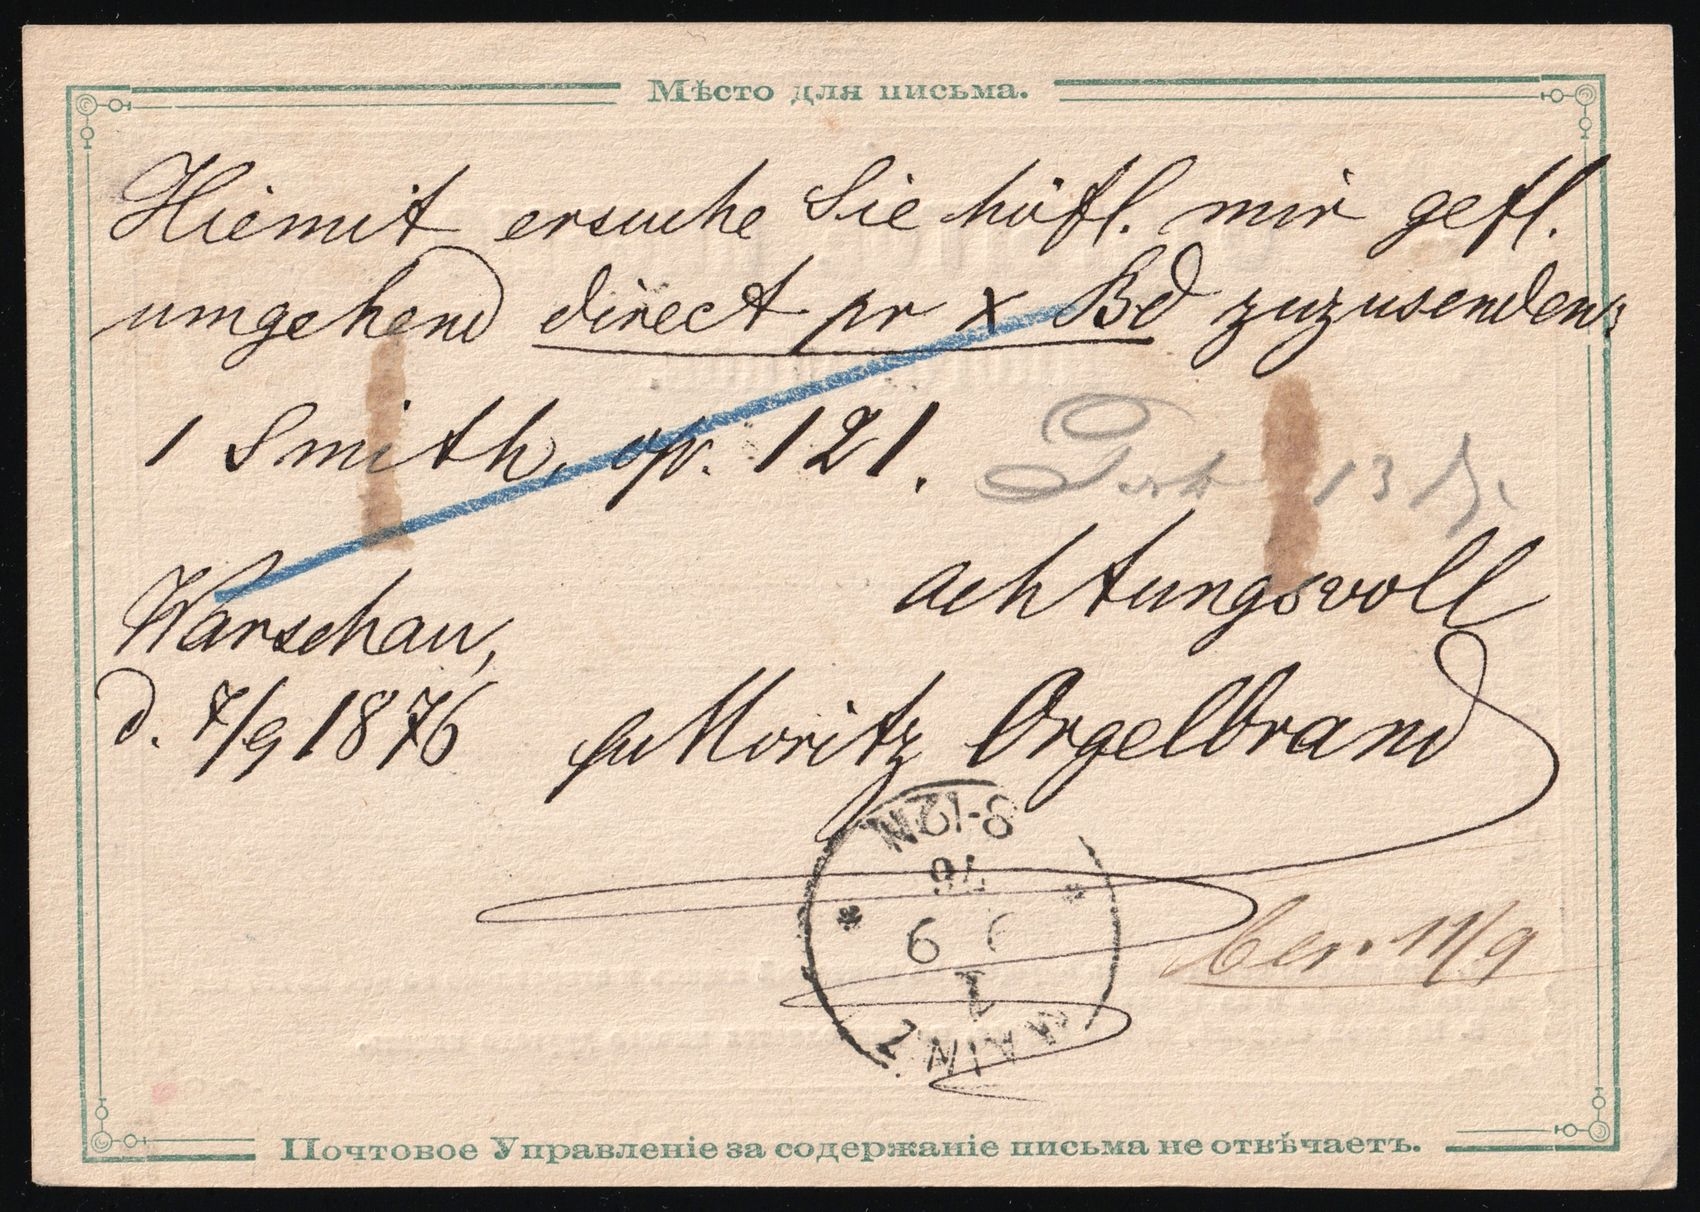 Мѣсто для письма.
Hiemit ersuche Sie höfl. mir gefl.
umgehend direct pr X Bd zuzusenden:
1 Smith, op. 121.
13
achtungsvoll
Warschau,
d. 7/9 1876
Moritz Orgelbrand
8-12M
76
9 9
1
MAINZ
11/9
Почтовое Управленіе за содержаніе письма не отвѣчаетъ.